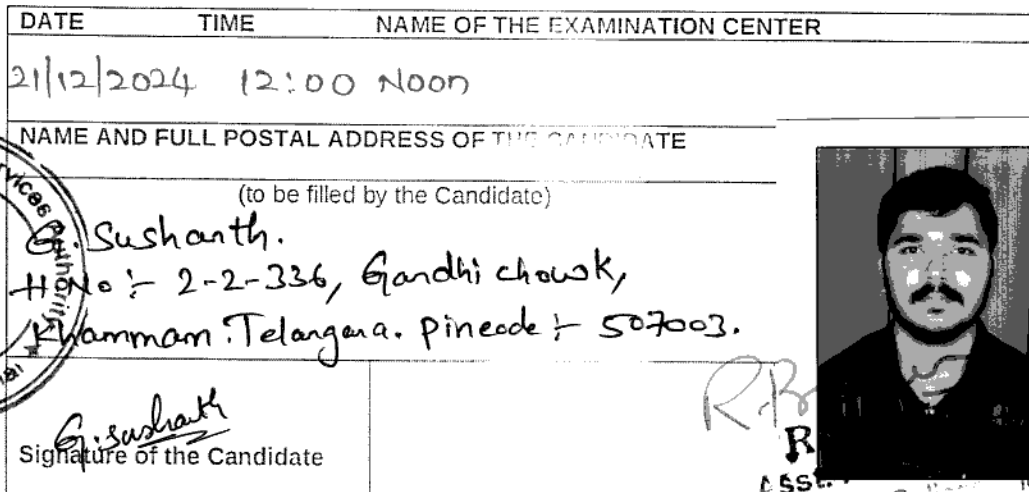 DATE TIME NAME OF THE EXAMINATION CENTER
21/12/2024 12:00 Noon
NAME AND FULL POSTAL ADDRESS OF THE CANDIDATE
(to be filled by the Candidate)
G. Sushanth.
H.No :- 2-2-336, Gandhi chowk,
Khammam. Telangana. pincode :- 507003.
G. Sushanth
Signature of the Candidate